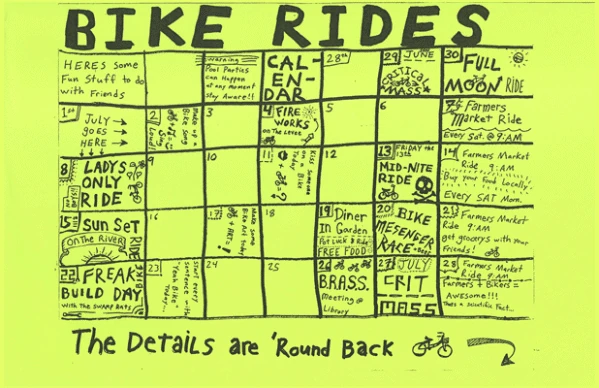 BIKE RIDES
HERES some
Fun Stuff to do
with Friends
Warning
Pool Parties
can Happen
at any Moment
Stay Aware!!
CAL-
EN-
DAR
28th
29 JUNE
CRITICAL
MASS
30 FULL
MOON RIDE
1st
JULY
GOES
HERE
2
Make up
Bike Song
Sing
Loud!
3
4 FIRE
WORKS
on The Levee
5
6
7 Farmers
Market Ride
Every Sat. @ 9:AM
8 LADYS
ONLY
RIDE
9
10
11
Kiss Someone
on a Bike
Today
12
13 FRIDAY the
13th
MID-NITE
RIDE
14 Farmers Market
Ride 9:AM
Buy your Food Locally
Every SAT Morn.
15 Sun Set
RIDE
ON THE RIVER
16
17
Make Some
Bike Art today
+ ART = !
18
19 Diner
In Garden
Pot Luck & Ride
FREE FOOD
20 BIKE
MESENGER
RACE
21 Farmers Market
Ride 9:AM
get grocerys with your
Friends!
22 FREAK
BIKE
BUILD DAY
WITH THE SWAMP RATS
23
Start every
sentence with
"Yea Bike"
Today...
24
25
26
B.R.A.S.S.
Meeting @
Library
27 JULY
CRIT
MASS
28 Farmers Market
Ride 9:AM
Farmers + Bikers =
Awesome!!!
Thats a scientific Fact...
The Details are 'Round Back